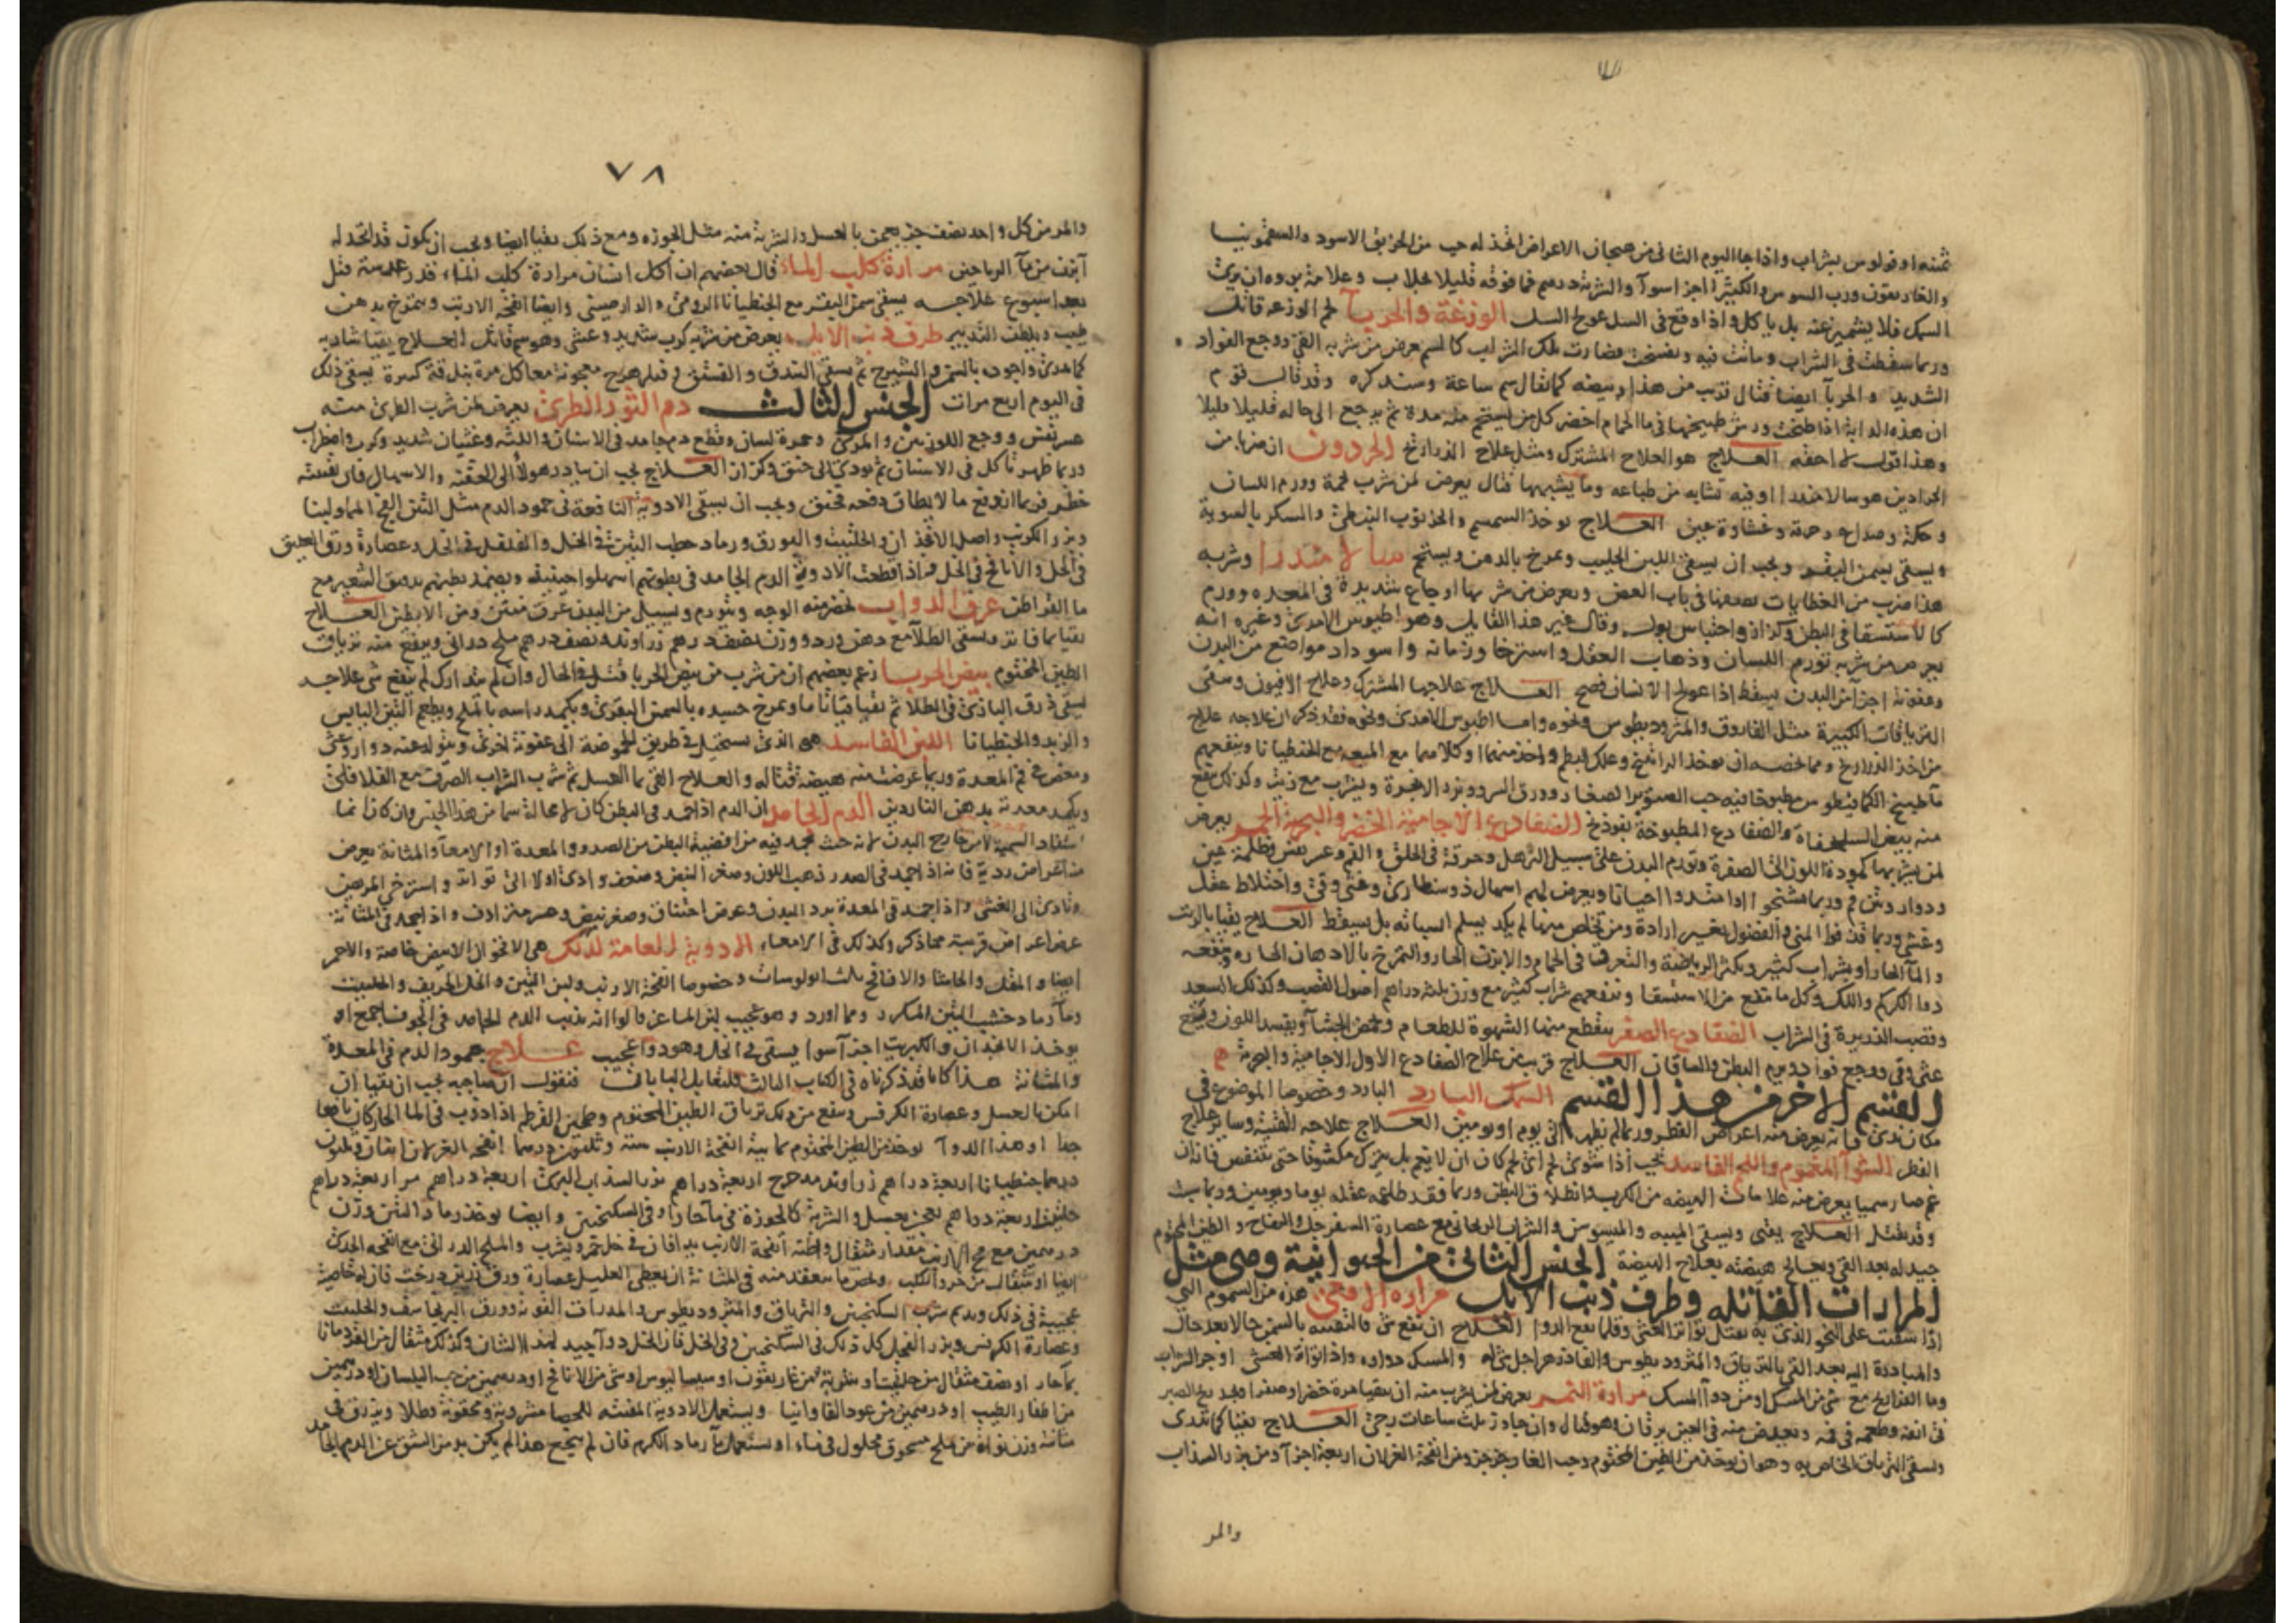 ثمنه او قولوس بشراب واذا جا اليوم الثانى من هيجان الاعراض اتخذ له حب من الخربق الاسود والسقمونيا
والغاريقون ورب السوس والكثيرا اجزا سوآ والشربة درهم فما فوقه قليلا بجلاب وعلامة بروه ان يرى
السمك فلا يشميز عنه بل ياكل واذا وقع فى السل عولج السل الوزغة والحربآ لحم الوزعه قاتل
وربما سقطت فى الشراب وماتت فيه وتفسخت فصارت تلك الشراب كالسم يعرض من شربه القئ ووجع الفواد
الشديد والحربآ ايضا قتال قريب من هذا وبيضه كما يقال سم ساعة وسنذكره وقد قال قوم
ان هذه الدابة اذا طبخت ورش طبيخها فى ما الحمام اخضر كل من استحم منه مدة ثم يرجع الى حاله قليلا قليلا
وهذا قول لا احقه العلاج هو العلاج المشترك ومثل علاج الذراريح الحردون ان ضربا من
الحرادين هو سالامندرا او فيه تشابه من طباعه وما يشبهها قتال يعرض لمن شرب لحمه وورم اللسان
وحكة وصداع وحرقة وغشاوة عين العلاج يوخذ السمسم والخرنوب النبطى والسكر بالسوية
ويسقى بسمن البقر ويجب ان يسقى اللبن الحليب ويمرخ بالدهن ويستحم سالامندرا وشربه
هذا ضرب من العظايات نصفها فى باب العض ويعرض من شربها اوجاع شديدة فى المعده وورم
كالاستسقا فى البطن وكزاز واحتباس بول وقال غير هذا القايل وهو اطيوس الامدى وغيره انه
يعرض من شربه تورم اللسان وذهاب العقل واسترخا وزمانه واسوداد مواضع من البدن
وعفونة اجزآ من البدن يسقط اذا عولج الانسان فصح العلاج علاجها المشترك وعلاج الافيون وسقى
الترياقات الكبيرة مثل الفاروق والمثروديطوس ونحوه واما اطيوس الامدى ونحوه فقد ذكر ان علاجه علاج
من اخذ الذراريح ومما تخصه ان يوخذ الراتينج وعلك البطم واحد منهما او كلاهما مع الميعه مع الجنطيانا وينفعهم
مآ طبيخ الكمافيطوس مطبوخا فيه حب الصنوبر الصغار وورق السرو وبزر الانجرة ويشرب مع زيت وكذلك ينفع
منه بيض السلحفاة والضفادع المطبوخة بفوذنج الضفادع الاجامية الخضر والبحرية الحمر يعرض
لمن يشربها كمودة اللون الى الصفرة وتورم البدن على سبيل الترهل وحرقة فى الحلق والفم وعسر نفس وظلمة عين
ودوار ونتن فم وربما تشنجوا او امتدوا احيانا ويعرض لهم اسهال ذوسنطارى وغثى وقئ واختلاط عقل
وغشى وربما قذفوا المنى والفضول بغير ارادة ومن يخلص منها لم يكد يسلم اسنانه بل يسقط العلاج يقيا بالزيت
والمآ الحار او بشراب كثير ويكثر الرياضة والتعرق فى الحمام والابزن الحار والتمريخ بالادهان الحاره وينفعه
دوا الكركم واللك وكل ما ينفع من الاستسقا وينفعهم شراب كثير مع وزن ثلثة دراهم اصول القصب وكذلك السعد
وقصب الذريرة فى الشراب الضفادع الصفر يقطع منها الشهوة للطعام ويحمض الجشآ ويفسد اللون ويهيج
غثى وقئ ووجع فواد وورم البطن والساقان العلاج قريب من علاج الضفادع الاول الاجامية والبحرية
القسم الاخر من هذا القسم السمك البارد البارد وخصوصا الموضوع فى
مكان ندى فانه يعرض منه اعراض الفطر وربما لم يظهر الى يوم او يومين العلاج علاجه القئ وساير علاج
الفطر الشوآ المغموم واللحم الفاسد يجب اذا شوى لحم اى لحم كان ان لا يغم بل يترك مكشوفا حتى يتنفس فانه ان
غم صار سميا يعرض منه علامات الهيضه من الكرب وانطلاق البطن وربما فقد طاعمه عقله يوما ويومين وربما سبت
وقد يقتل العلاج يقئ ويسقى الميبه والميسوس والشراب الريحانى مع عصارة السفرجل والتفاح والطين المختوم
جيد له بعد القئ ويعالج هيضته بعلاج الهيضة الجنس الثانى من الحيوانية وهى مثل
المرارات القتاله وطرف ذنب الايل مرارة الافعى هذه من السموم التى
اذا سقيت على النحو الذى به يقتل تواتر الغشى وقلما ينفع الدوا العلاج ان نفع شئ فالتقيه بالسمن حالا بعد حال
والمبادرة اليه بعد القئ بالترياق والمثروديطوس والفادزهر اجل شئ له والمسك دواه واذا تواتر الغشى اوجر الشراب
وما الفراريج مع شئ من المسك او من دوآ المسك مرارة النمر يعرض لمن شرب منه ان يقيا مرة خضرا وصفرا ويجد ريح الصبر
فى انفه وطعمه فى فمه ويعرض منه فى العين يرقان وهو قتال وان جاوز ثلث ساعات رجى العلاج يقيا كما تدرى
ويسقى الترياق الخاص به وهو ان يوخذ من الطين المختوم وحب الغار جزجز ومن انفحة الغزلان اربعة اجزآ ومن بزر السذاب
والمر
٧٨
والمر من كل واحد نصف جز يعجن بالعسل والشربة منه مثل الجوزه ومع ذلك يقيا ايضا ويجب ان يكون قد اتخذ له
ابزن من مآ الرياحين مرارة كلب المآء قال بعضهم ان اكل انسان مرارة كلب المآء قدر عدسة قتل
بعد اسبوع علاجه يسقى سمن البقر مع الجنطيانا الرومى والدارصينى وايضا انفحه الارنب ويتمرخ بدهن
طيب ويلطف التدبير طرف ذنب الايل يعرض من شربه كرب شديد وغشى وهو سم قاتل العلاج يقيا شاربه
كما تدرى واجوده بالسمن والشيرج ثم يسقى البندق والفستق وفيلزهرج معجونة معا كل مرة بندقة كبيرة يسقى ذلك
فى اليوم اربع مرات الجنس الثالث دم الثور الطرى يعرض لمن شرب الطرى منه
عسر نفس ووجع اللوزتين والمرى وحمرة لسان وقطع دم جامد فى الاسنان واللثه وغثيان شديد وكرب واضطراب
وربما ظهر تاكل فى الاسنان ثم يودى الى خنق وكزاز العلاج يجب ان يبادر هولآ الى الحقنه والاسهال فان تقيته
خطر فربما اندفع ما لا يطاق دفعه فخنق ويجب ان يسقى الادوية النافعة فى جمود الدم مثل التين الفج المملو لبنا
وبزر الكرنب واصل الانجذان والحلتيت والبورق ورماد حطب التين فى الخل والفلفل فى الخل وعصارة ورق العليق
فى الخل والانافح فى الخل فاذا قطعت الادوية الدم الجامد فى بطونهم اسهلوا حينئذ ويضمد بطنهم بدقيق الشعير مع
ما القراطن عرق الدواب يخضر منه الوجه ويتورم ويسيل من البدن عرق منتن ومن الابطين العلاج
يقيا بما فاتر ويسقى الطلآ مع دهن ورد ووزن نصف درهم زراوند ونصف درهم ملح درانى وينفع منه ترياق
الطين المختوم بيض الحربا زعم بعضهم ان من شرب من بيض الحربا قتل فى الحال وان لم يتدارك لم ينفع شئ علاجه
يسقى ذرق البازى فى الطلا ثم يقيا قيئا تاما ويمرخ جسده بالسمن البقرى ويكمد راسه بالملح ويطعم التين اليابس
والزبد والجنطيانا اللبن الفاسد هو الذى يستحيل فى طريق الحموضة الى عفونة اخرى ويتولد عنه دوار وغثى
ومغص فى فم المعدة وربما عرضت منه هيضة قتاله والعلاج القئ بما العسل ثم شرب الشراب الصرف مع الفلافلى
ويكمد معدته بدهن الناردين الدم الجامد ان الدم اذا جمد فى البطن كان لا محالة سما من هذا الجنس وان كان انما
استفاد السمية لا من خارج البدن لانه حيث يجمد فيه من افضية البطن من الصدر والمعدة او الامعآ والمثانة يعرض
منه اعراض ردية فانه اذا جمد فى الصدر ذهب اللون وصغر النبض وضعف وادى اولا الى تواتر واسترخى المريض
وتادى الى الغشى واذا جمد فى المعدة برد البدن وعرض اختناق وصغر نبض وهو متزادف واذا جمد فى المثانة
عرض اعراض قريبة مما ذكر وكذلك فى الامعاء الادوية العامة لذلك هى الانجذان الابيض خاصة والاحمر
ايضا والمقل والحاشا والانافح ثلث ابولوسات وخصوصا انفحة الارنب ولبن التين والخل الحريف والحلتيت
ومآ رماد خشب التين المكرر ومما اورد وهو عجيب لبن الماعز قالوا انه يذيب الدم الجامد فى الجوف اجمع او
يوخذ الانجذان والكبريت اجزآ سوا يسقى فى الخل وهو دوآ عجيب علاج جمود الدم فى المعدة
والمثانة هذا كنا قد ذكرناه فى الكتاب الثالث فنقول ان صاحبه يجب ان يقيا ان
امكن بالعسل وعصارة الكرفس وينفع من ذلك ترياق الطين المختوم وطين القرطم اذا ديف فى الما الحار كان نافعا
جدا او هذا الدوآ يوخذ من الطين المختوم ثمانية انفحة الارنب ستة وثلثون درهما انفحه الغزلان اثنان وثلثون
درهما جنطيانا اربعة دراهم زراوند مدحرج اربعة دراهم بزر السذاب البرى اربعة دراهم مر اربعة دراهم
حلتيت اربعة دراهم يعجن بعسل والشربة كالجوزة فى مآ حار او فى السكنجبين وايضا يوخذ رماد التين وزن
درهمين مع مخ الارنب مقدار مثقال وايضا انفحة الارنب يدافان فى خل خمر ويشرب والملح الدرانى مع انفحه الجدى
ايضا او مثقال من خرو الكلب وتخص ما ينعقد منه فى المثانة ان يعطى العليل عصارة ورق درخت فان له خاصية
عجيبة فى ذلك ويديم شرب السكنجبين والترياق والمثروديطوس والمدرات القوية وورق البرنجاسف والحلتيت
وعصارة الكرفس وبزر الفجل كل ذلك فى السكنجبين وفى الخل فان الخل دوآ جيد لهذا الشان وكذلك مثقال من القردمانا
بمآ حار او نصف مثقال من حلتيت او شربة من غاريقون او سيساليوس او شئ من الانافح او درهمين من حب البلسان او درهمين
من اظفار الطيب او درهمين من عود الفاوانيا ويستعمل الادوية المفتته للحصا مشروبة ومحقونة وطلا ويزرق فى
مثانته وزن نواة من ملح مسحوق محلول فى ماء او يستعمل مآ رماد الكرم فان لم ينجح هذا لم يكن بد من الشق عن الدم الجامد